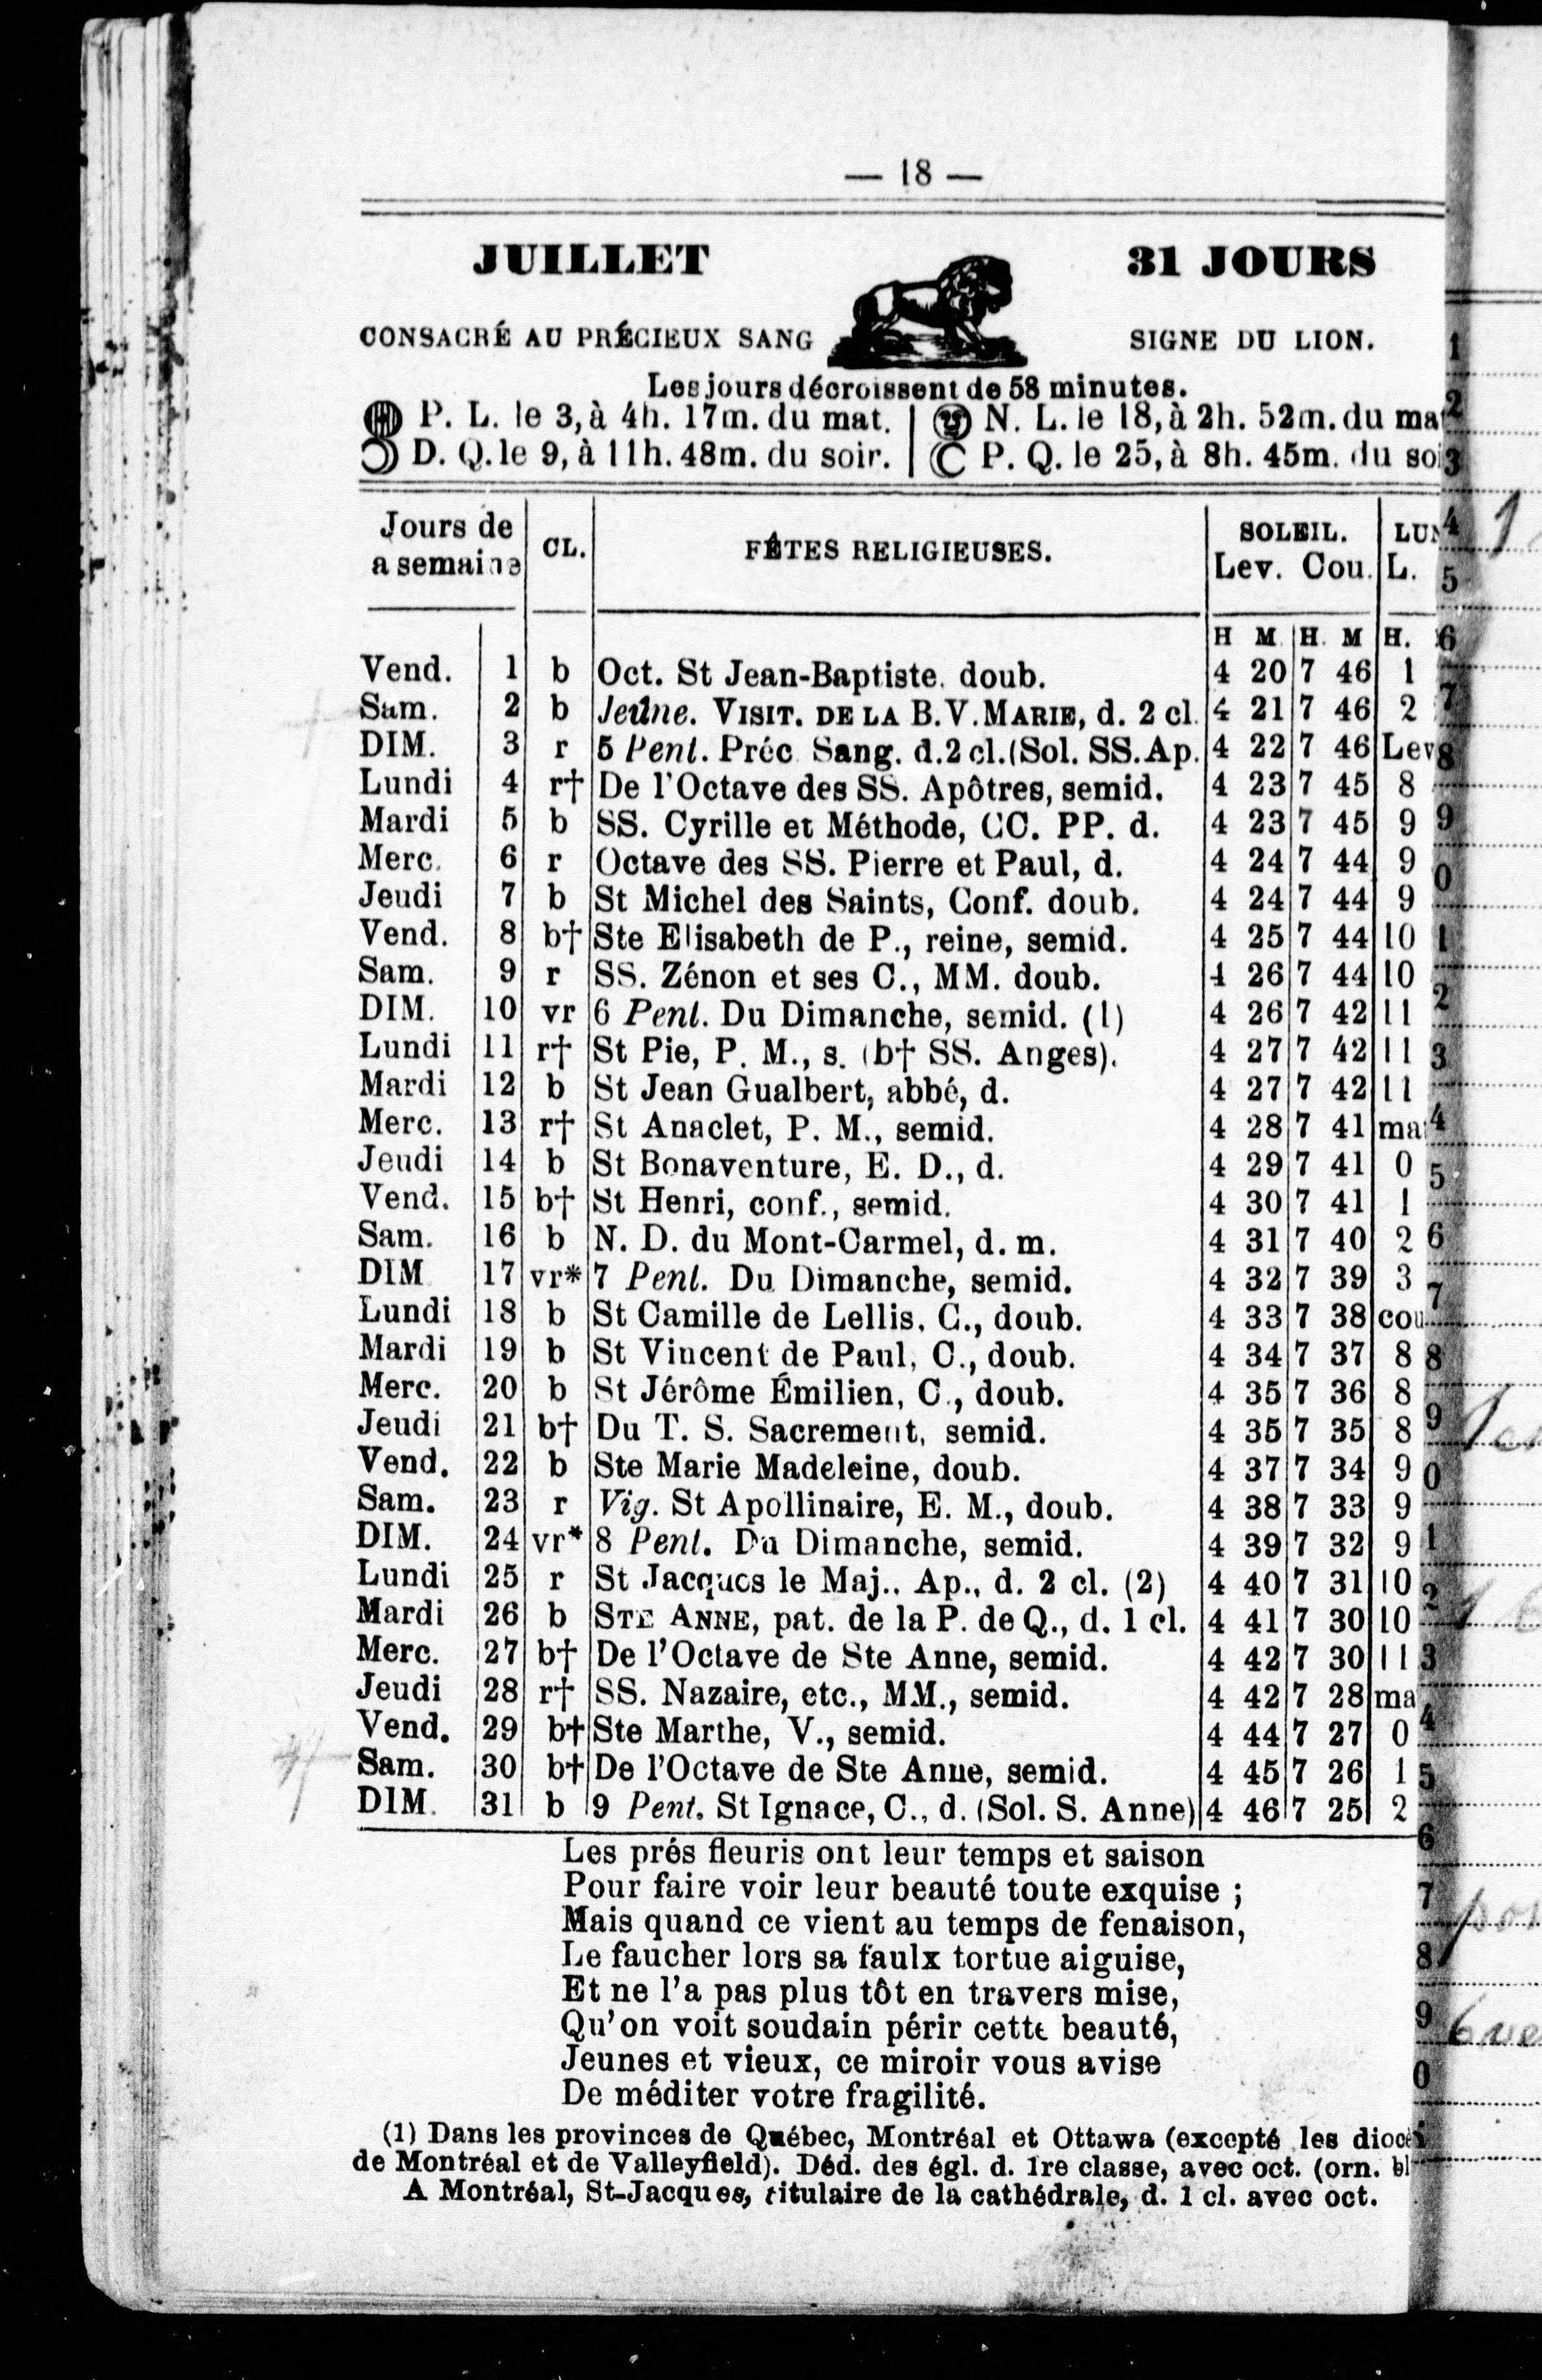 — 18 —
JUILLET 31 JOURS
CONSACRÉ AU PRÉCIEUX SANG SIGNE DU LION.
Les jours décroissent de 58 minutes.
P. L. le 3, à 4h. 17m. du mat. | N. L. le 18, à 2h. 52m. du
D. Q. le 9, à 11h. 48m. du soir. | P. Q. le 25, à 8h. 45m. du
Jours de CL. FÊTES RELIGIEUSES. SOLEIL.
a semaine Lev. Cou. L.
H M H. M H.
Vend. 1 b Oct. St Jean-Baptiste. doub. 4 20 7 46 1
Sam. 2 b Jeûne. VISIT. DE LA B.V.MARIE, d. 2 cl. 4 21 7 46 2
DIM. 3 r 5 Pent. Préc. Sang. d.2 cl.(Sol. SS.Ap. 4 22 7 46 Lev
Lundi 4 r† De l'Octave des SS. Apôtres, semid. 4 23 7 45 8
Mardi 5 b SS. Cyrille et Méthode, CC. PP. d. 4 23 7 45 9
Merc. 6 r Octave des SS. Pierre et Paul, d. 4 24 7 44 9
Jeudi 7 b St Michel des Saints, Conf. doub. 4 24 7 44 9
Vend. 8 b† Ste Elisabeth de P., reine, semid. 4 25 7 44 10
Sam. 9 r SS. Zénon et ses C., MM. doub. 4 26 7 44 10
DIM. 10 vr 6 Pent. Du Dimanche, semid. (1) 4 26 7 42 11
Lundi 11 r† St Pie, P. M., s. (b† SS. Anges). 4 27 7 42 11
Mardi 12 b St Jean Gualbert, abbé, d. 4 27 7 42 11
Merc. 13 r† St Anaclet, P. M., semid. 4 28 7 41 ma
Jeudi 14 b St Bonaventure, E. D., d. 4 29 7 41 0
Vend. 15 b† St Henri, conf., semid. 4 30 7 41 1
Sam. 16 b N. D. du Mont-Carmel, d. m. 4 31 7 40 2
DIM 17 vr* 7 Pent. Du Dimanche, semid. 4 32 7 39 3
Lundi 18 b St Camille de Lellis, C., doub. 4 33 7 38 cou
Mardi 19 b St Vincent de Paul, C., doub. 4 34 7 37 8
Merc. 20 b St Jérôme Émilien, C., doub. 4 35 7 36 8
Jeudi 21 b† Du T. S. Sacrement, semid. 4 35 7 35 8
Vend. 22 b Ste Marie Madeleine, doub. 4 37 7 34 9
Sam. 23 r Vig. St Apollinaire, E. M., doub. 4 38 7 33 9
DIM. 24 vr* 8 Pent. Du Dimanche, semid. 4 39 7 32 9
Lundi 25 r St Jacques le Maj., Ap., d. 2 cl. (2) 4 40 7 31 10
Mardi 26 b STE ANNE, pat. de la P. de Q., d. 1 cl. 4 41 7 30 10
Merc. 27 b† De l'Octave de Ste Anne, semid. 4 42 7 30 11
Jeudi 28 r† SS. Nazaire, etc., MM., semid. 4 42 7 28 ma
Vend. 29 b† Ste Marthe, V., semid. 4 44 7 27 0
Sam. 30 b† De l'Octave de Ste Anne, semid. 4 45 7 26 1
DIM. 31 b 9 Pent. St Ignace, C., d. (Sol. S. Anne) 4 46 7 25 2
Les prés fleuris ont leur temps et saison
Pour faire voir leur beauté toute exquise ;
Mais quand ce vient au temps de fenaison,
Le faucher lors sa faulx tortue aiguise,
Et ne l'a pas plus tôt en travers mise,
Qu'on voit soudain périr cette beauté,
Jeunes et vieux, ce miroir vous avise
De méditer votre fragilité.
(1) Dans les provinces de Québec, Montréal et Ottawa (excepté les
de Montréal et de Valleyfield). Déd. des égl. d. 1re classe, avec oct. (orn.
A Montréal, St-Jacques, titulaire de la cathédrale, d. 1 cl. avec oct.